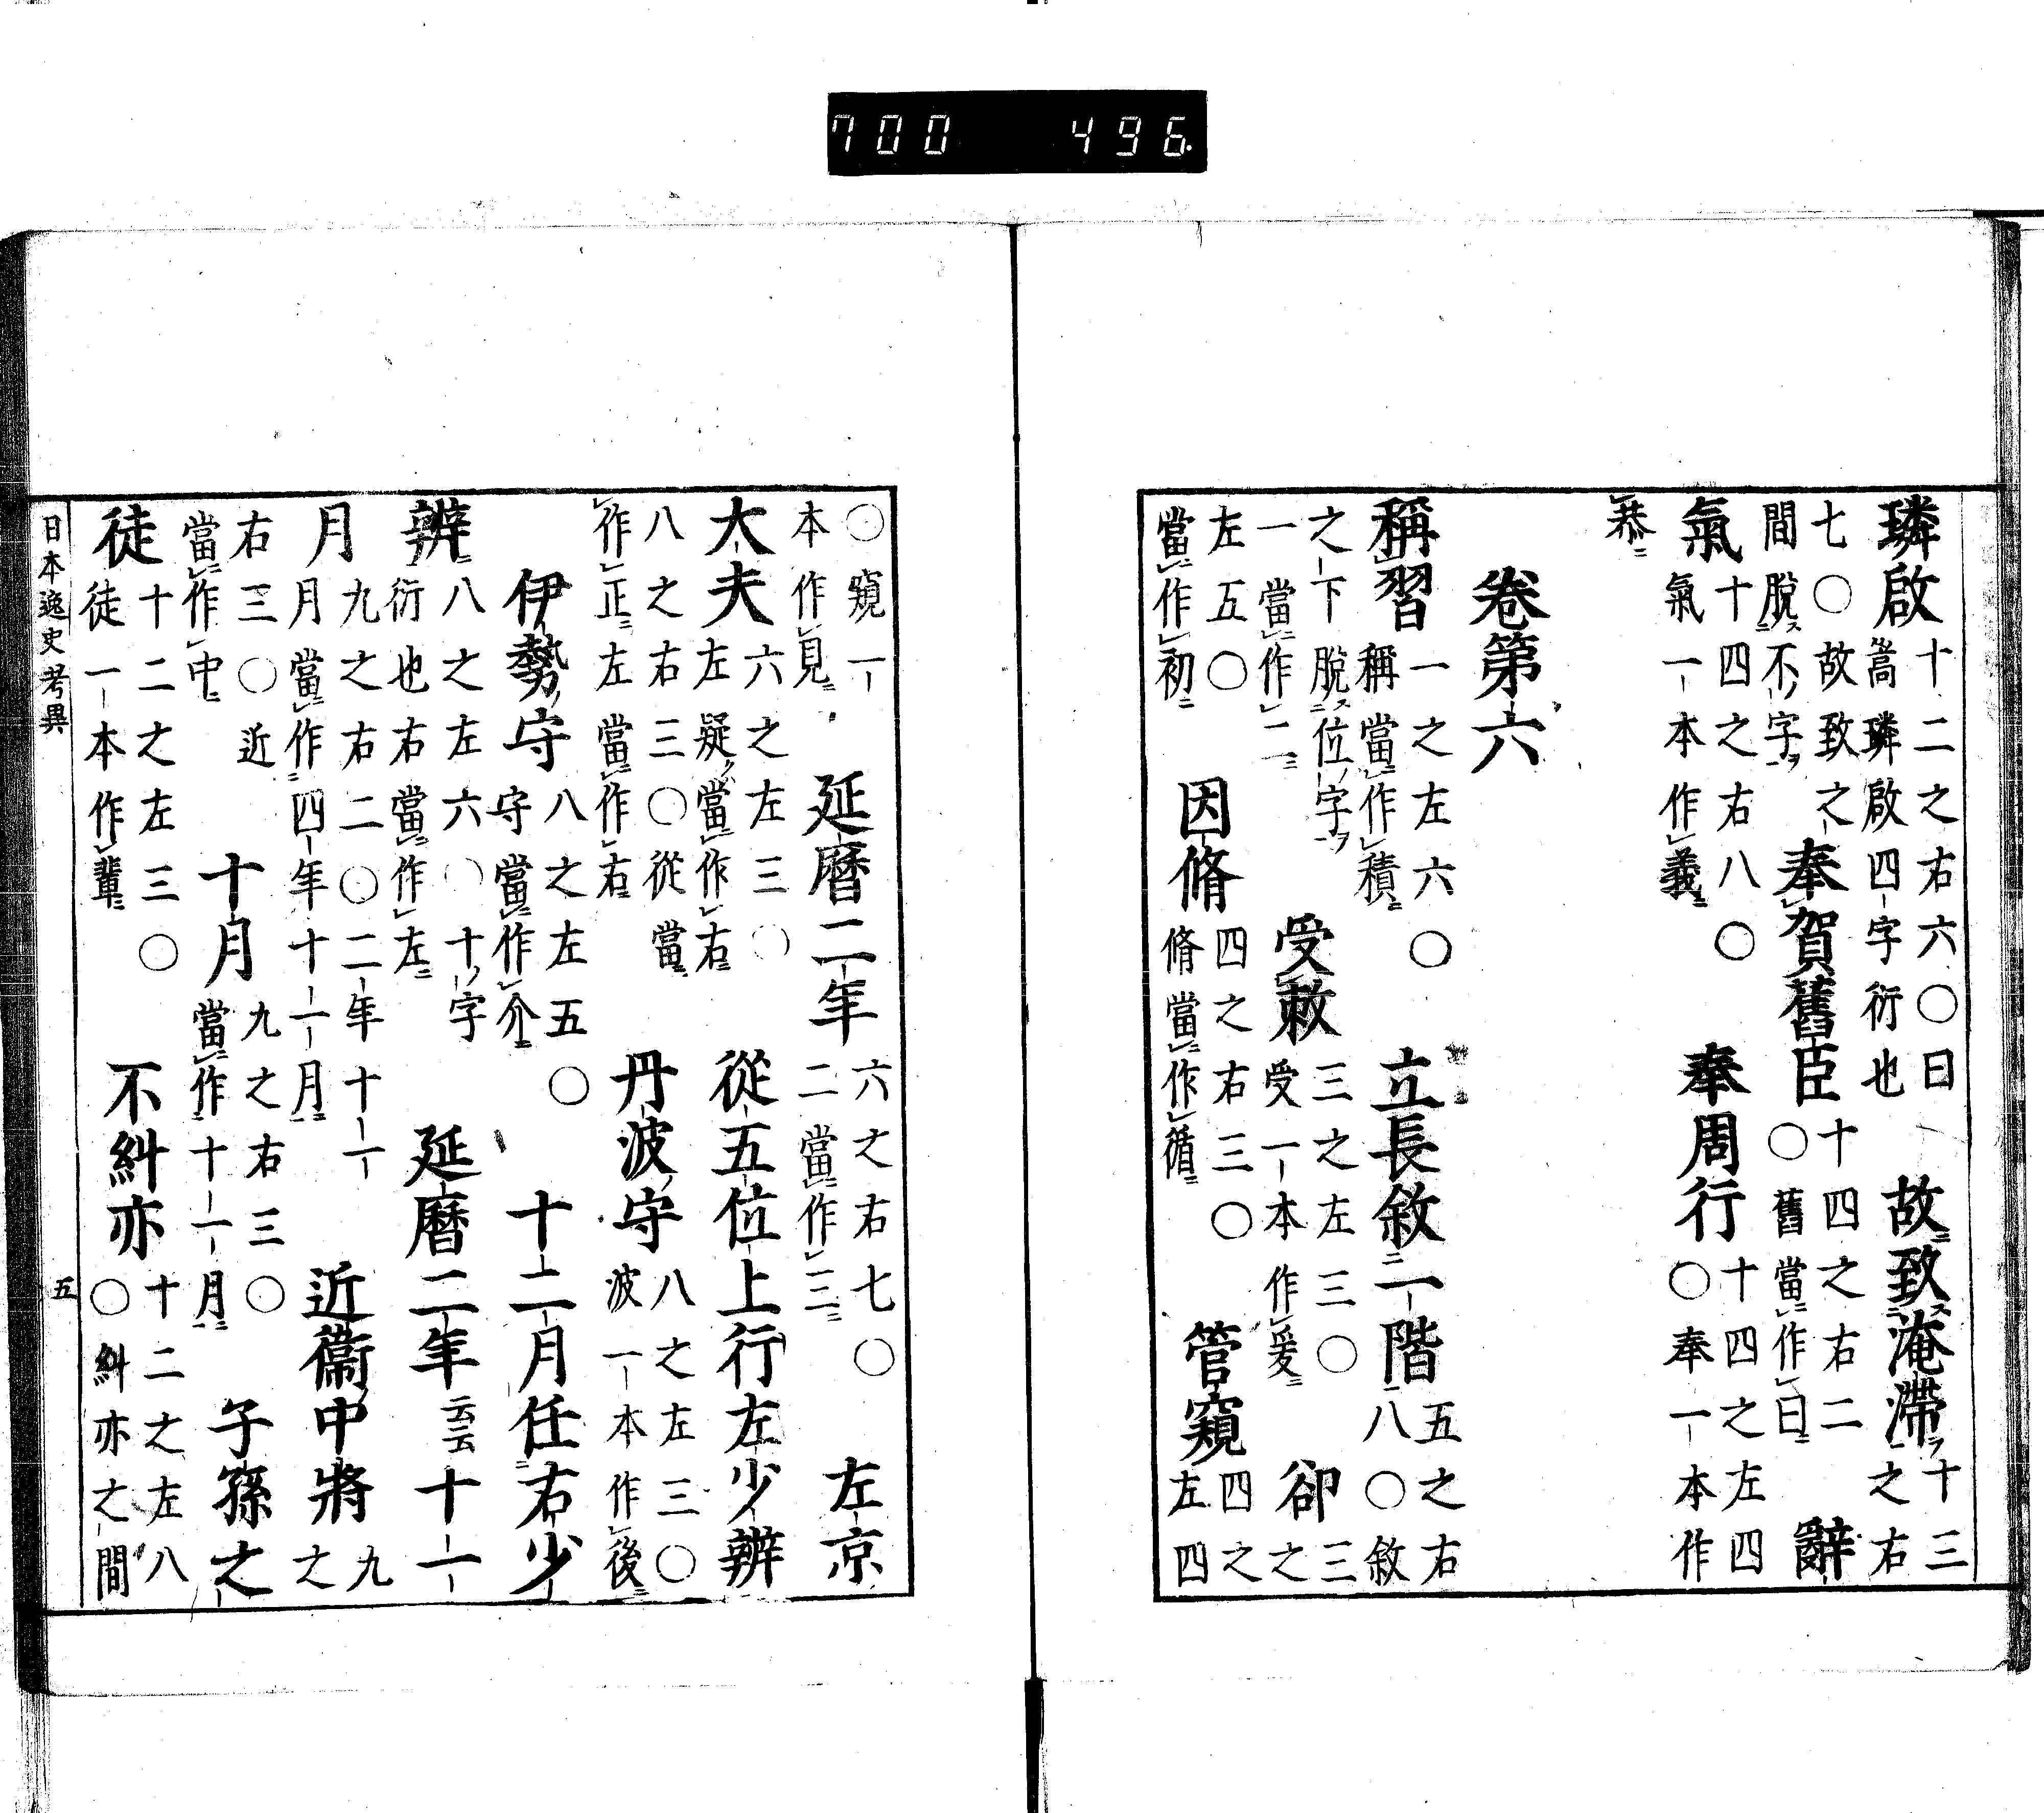 700 496
璘啟十二之右六〇曰嵩璘啟四字衍也　故致淹滯十三之右
七〇故致之間脫不字　奉賀舊臣十四之右二〇舊當作曰　辭
氣十四之右八〇氣一本作義　奉周行十四之左四〇奉一本作
恭
卷第六
稱習一之左六〇稱當作積　立長敘一階五之右八〇敘
之下脫位字一當作二　受敕三之左三〇受一本作爰　卻三之
左五〇當作初　因脩四之右三〇脩當作循　管窺四之左四
〇窺一本作見　延曆二年六之右七〇二當作三　左京
大夫六之左三〇左疑當作右　從五位上行左少辨
八之右三〇從當作正左當作右　丹波守八之左三〇波一本作後
伊勢守八之左五〇守當作介　十二月任右少
辨八之左六〇十字衍也右當作左　延曆二年云云十一
月九之右二〇二年十一月當作四年十一月　近衞中將九之
右三〇近當作中　十月九之右三〇當作十一月　子孫之
徒十二之左三〇徒一本作輩　不糾亦十二之左八〇糾亦之間
日本逸史考異　五